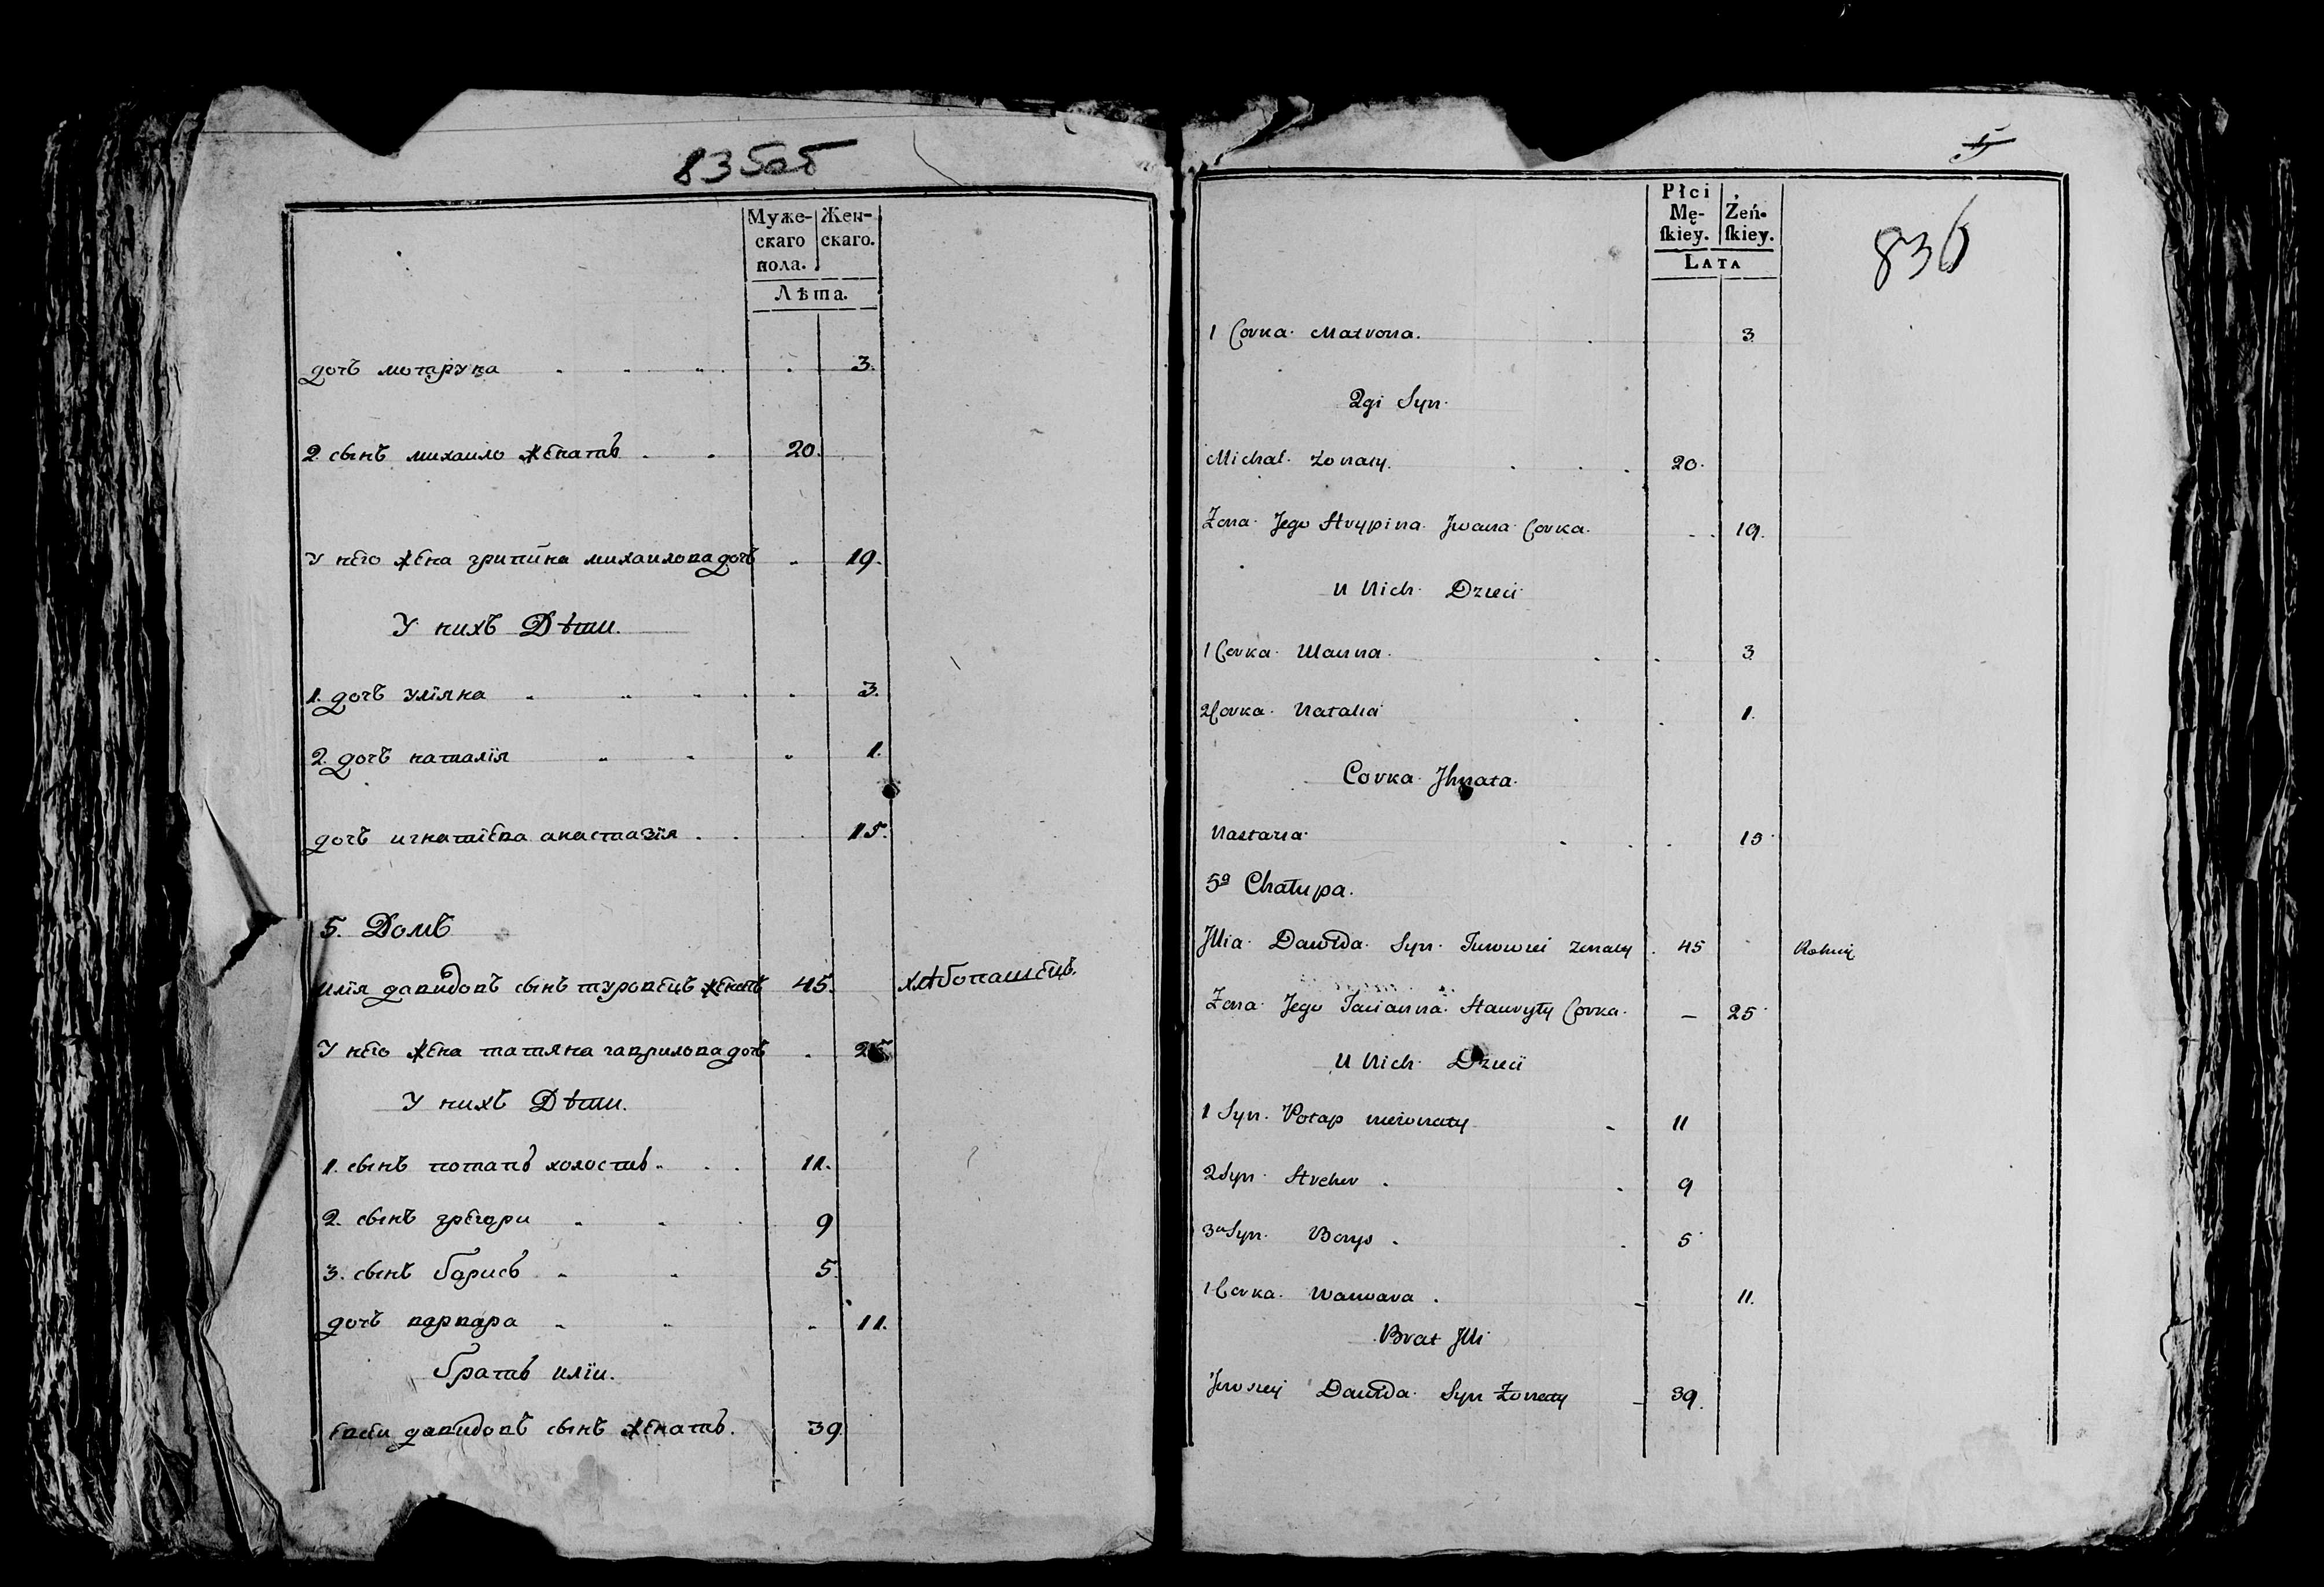 835об
Муже-
скаго
пола.
Жен-
скаго.
Лѣта.
дочь мотаруна 3.
2 сынъ михаило женатъ 20.
У него жена грипина михаилова дочь 19.
У нихъ Дѣти.
1. дочь улiяна 3.
2. дочь наталiя 1.
дочь игнатiева анастазiя 15.
5. Домъ
илiя давидовъ сынъ туровецъ женатъ 45. хлѣбопашецъ.
У него жена татяна гаврилова дочь 25.
У нихъ Дѣти.
1. сынъ потапъ холостъ 11.
2. сынъ грегори 9
3. сынъ борисъ 5.
дочь варвара 11.
братъ илiи.
евсеи давидовъ сынъ женатъ. 39.
5
Płci
Mę-
ſkiey.
Żeń-
ſkiey.
LATA
836
1 Corka Matrona. 3
2gi Syn.
Michał Żonaty. 20.
Żona Jego Hrypina Jwana Corka. 19.
U Nich Dzieci
1 Corka Ulanna. 3
2 Corka Natalia 1.
Corka Jhnata.
Nastazia 15
5a Chałupa.
Jllia Dawida Syn Turowiei żonaty 45 Rolnik
Żona Jego Tacianna Hawryły Corka. – 25
U Nich Dzieci
1 Syn Potap nieżonaty 11
2 Syn Hrehor 9
3 Syn Borys 5
1 Corka Warwara 11.
Brat Jlli
Dawida Syn Żonaty 39.